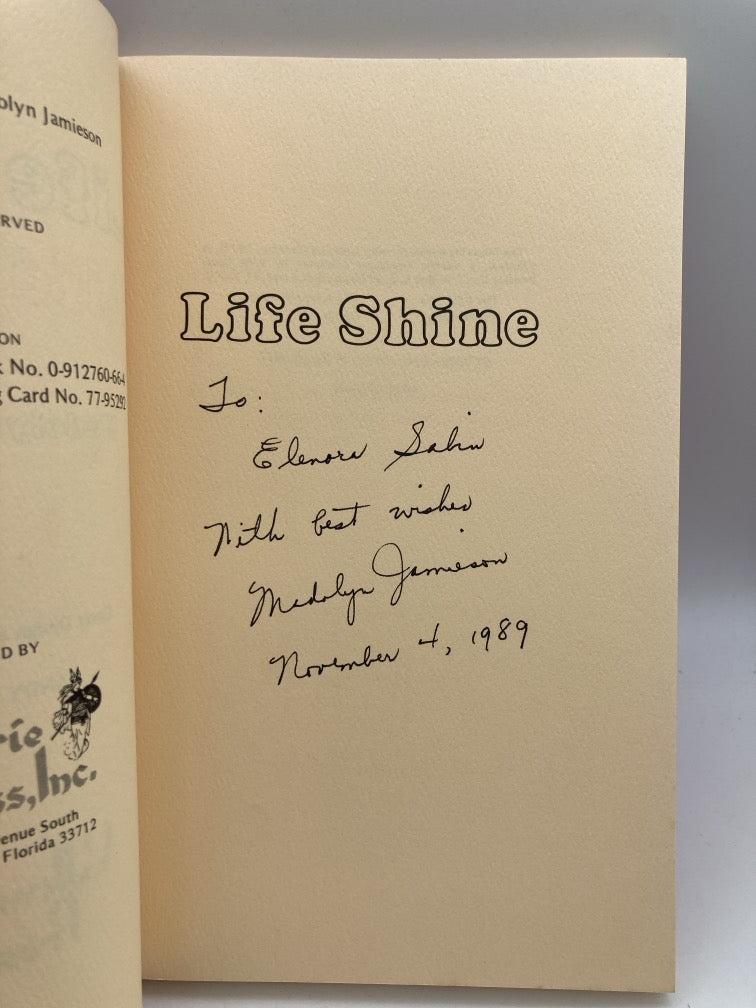 olyn Jamieson
RVED
ON
k No. 0-912760-66-4
g Card No. 77-95292
D BY
rie
ss, Inc.
enue South
Florida 33712
Life Shine
To:
Elenora Sabin
With best wishes
Madolyn Jamieson
November 4, 1989